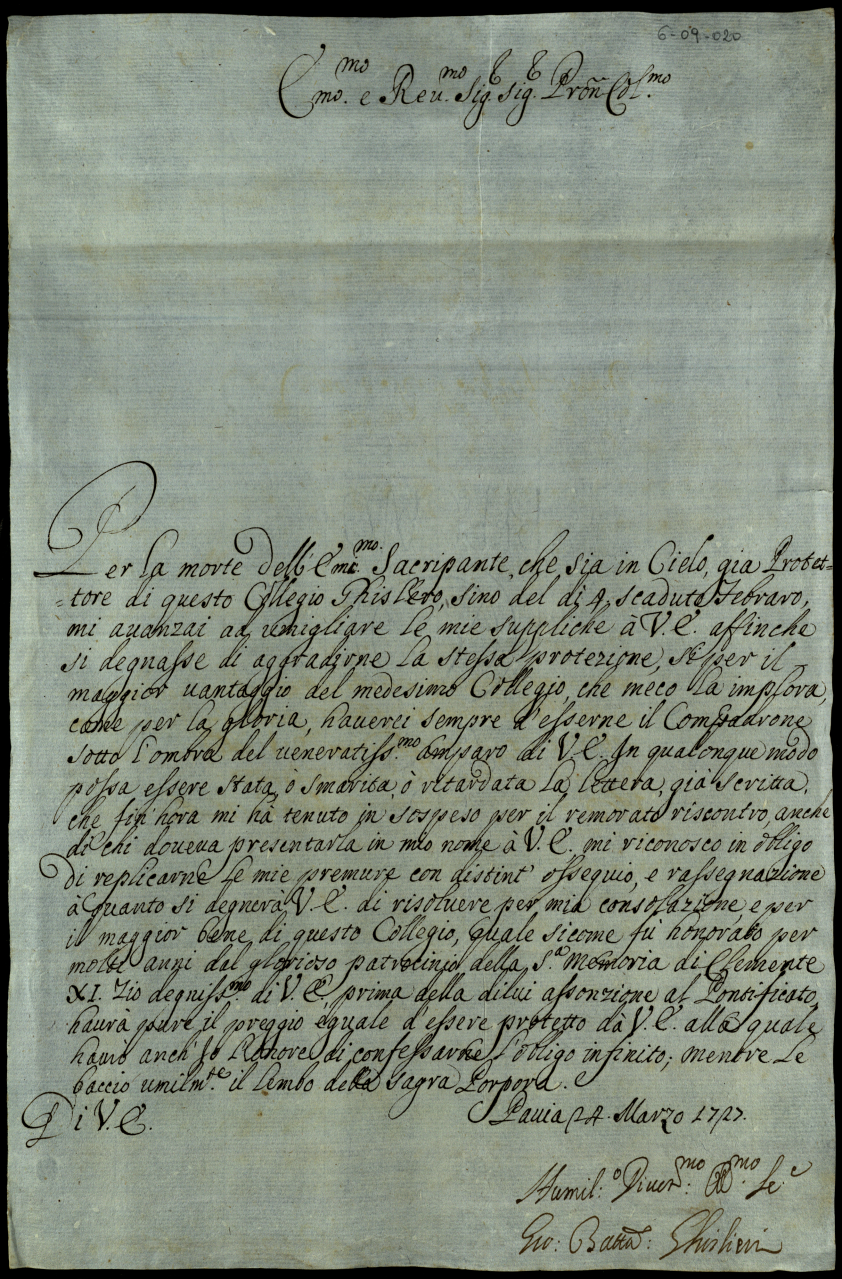 6-09-020
Emo. mo e Reu.mo Sig.r Sig.r Pron Col.mo
Per la morte dell'Emo.mo Sacripante, che sia in Cielo, gia Protet=
=tore di questo Collegio Ghislero, sino del di 4 scaduto Febraro,
mi auanzai ad umigliare le mie suppliche à V.E. affinche
si degnasse di aggradirne la stessa protezione, sì per il
maggior uantaggio del medesimo Collegio, che meco la implora,
come per la gloria, hauerei sempre d'esserne il Compadrone
sotto l'ombra del ueneratiss.mo amparo di V.E. In qualonque modo
possa essere stata, ò smarita, ò ritardata la lettera, già scritta,
che fin'hora mi hà tenuto in sospeso per il remorato riscontro, anche
di chi doueua presentarla in mio nome à V.E. mi riconosco in obligo
di replicarne le mie premure con distint' ossequio, e rassegnazione
à quanto si degnerà V.E. di risoluere per mia consolazione, e per
il maggior bene di questo Collegio, quale sicome fù honorato per
molti anni dal glorioso patrocinio della S.a Memoria di Clemente
XI. Zio degniss.mo di V.E., prima della dilui assonzione al Pontificato,
haurà pure il preggio eguale d'essere protetto dà V.E. alla quale
haurò anch'Io l'honore di confessarne l'obligo infinito; mentre le
baccio umilm.te il lembo della sagra Porpora.
Di V.E.
Pauia 24. Marzo 1727.
Humil:o Diuot.mo Se.e
Gio: Batta: Ghislieri